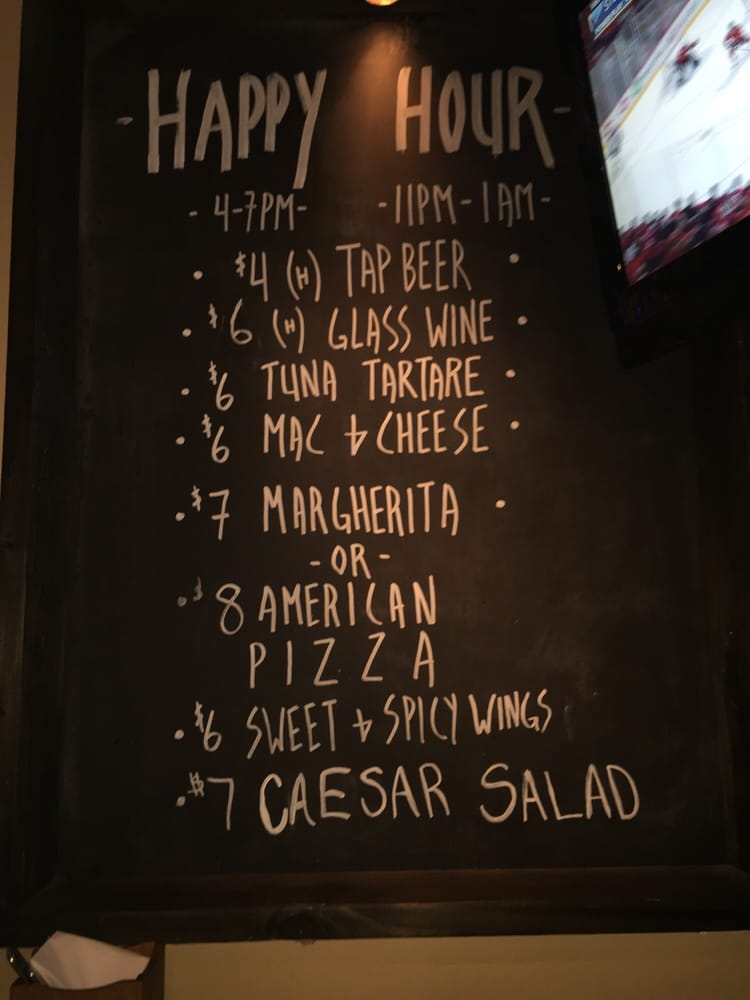 - HAPPY HOUR -
- 4-7PM - - 11PM - 1AM -
• $4 (H) TAP BEER •
• $6 (H) GLASS WINE •
• $6 TUNA TARTARE •
• $6 MAC & CHEESE •
• $7 MARGHERITA •
- OR -
• $8 AMERICAN
PIZZA
• $6 SWEET & SPICY WINGS
• $7 CAESAR SALAD